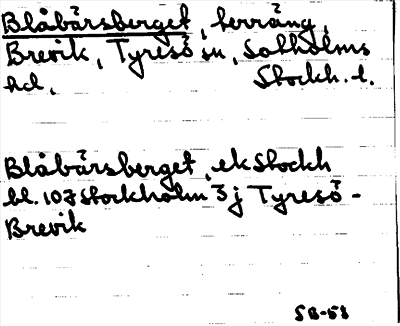 Blåbärsberget, terräng,
Brevik, Tyresö sn, Sotholms
hd, Stockh. l.
Blåbärsberget, ek Stockh
bl. 107 Stockholm 3j Tyresö -
Brevik
SB-58